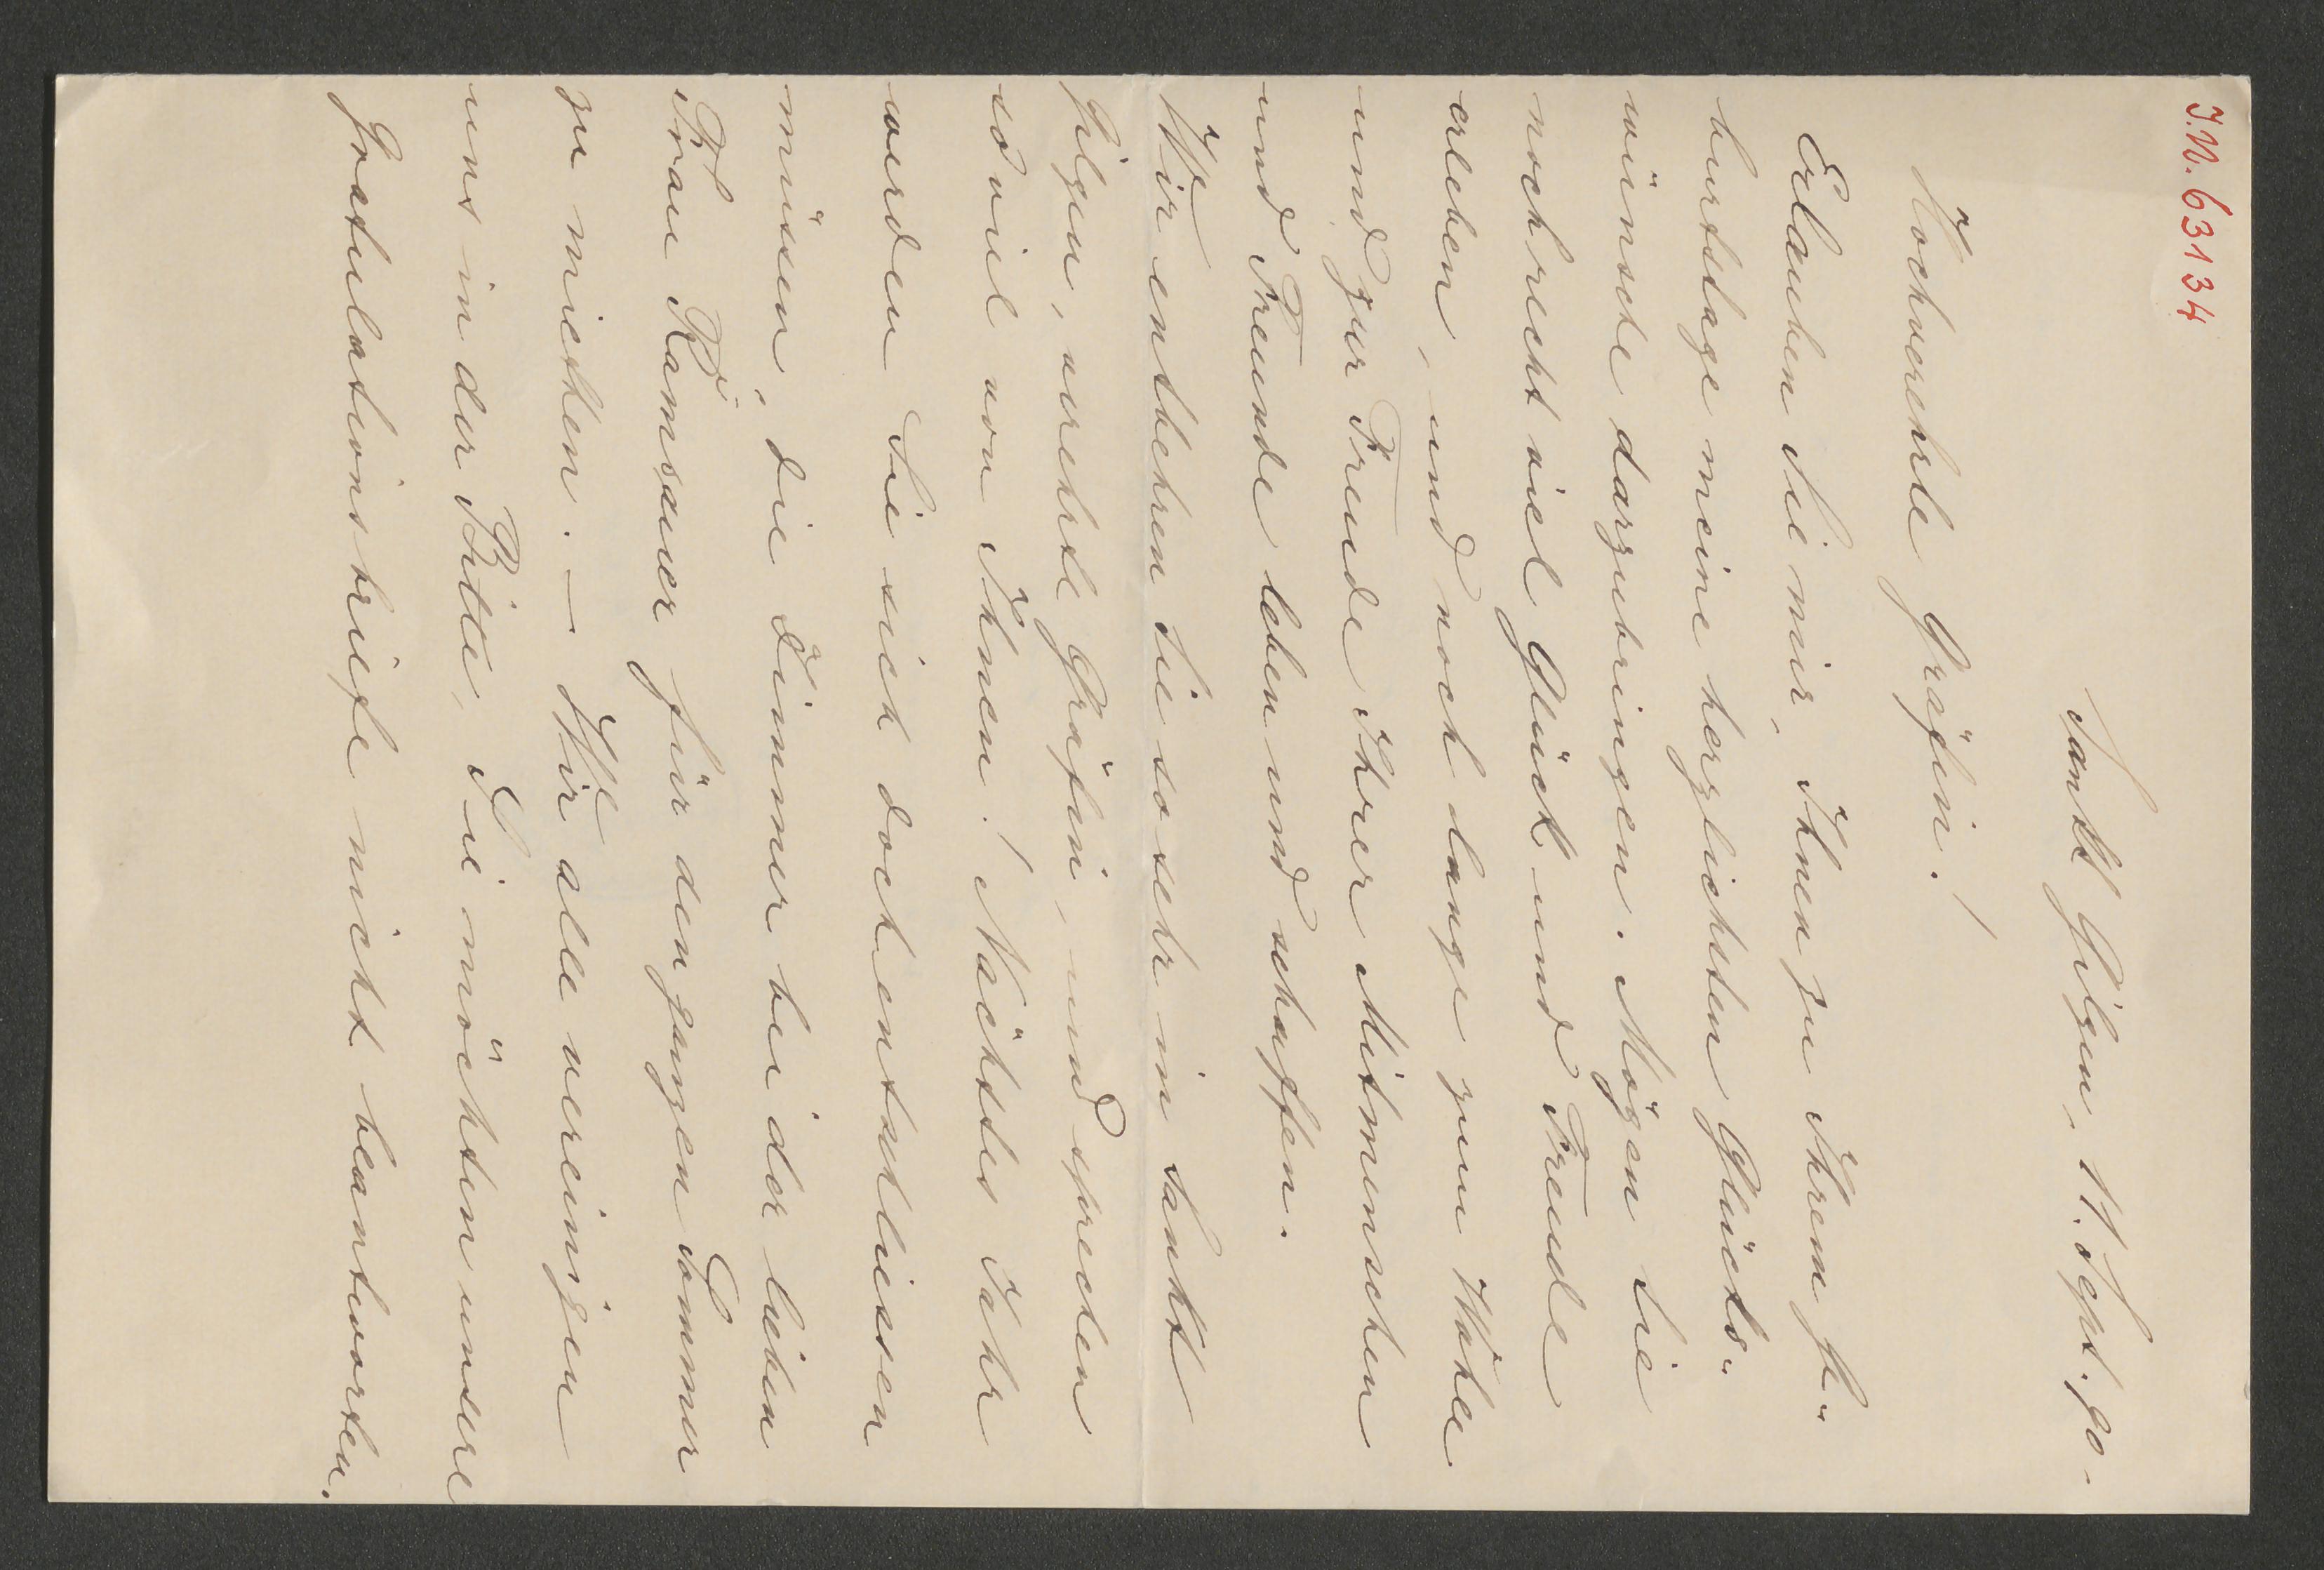 I.N. 63134
Sankt Gilgen, 11. Sept. 90.
Hochverehrte Gräfin!
Erlauben Sie mir, Ihnen zu Ihrem Ge-
burtstage meine herzlichsten Glücks-
wünsche darzubringen. Mögen Sie
noch recht viel Glück und Freude
erleben, und noch lange zum Wohle
und zur Freude Ihrer Mitmenschen
und Freunde leben und schaffen.
Wir entbehren Sie so sehr in Sankt
Gilgen, verehrte Gräfin, und sprechen
so viel von Ihnen! Nächstes Jahr
werden Sie sich doch entschliessen
müssen, die Zimmer bei der lieben
Frau Ramsauer für den ganzen Sommer
zu miethen. – Wir alle vereinigen
uns in der Bitte, Sie möchten unsere
Gratulationsbriefe nicht beantworten.